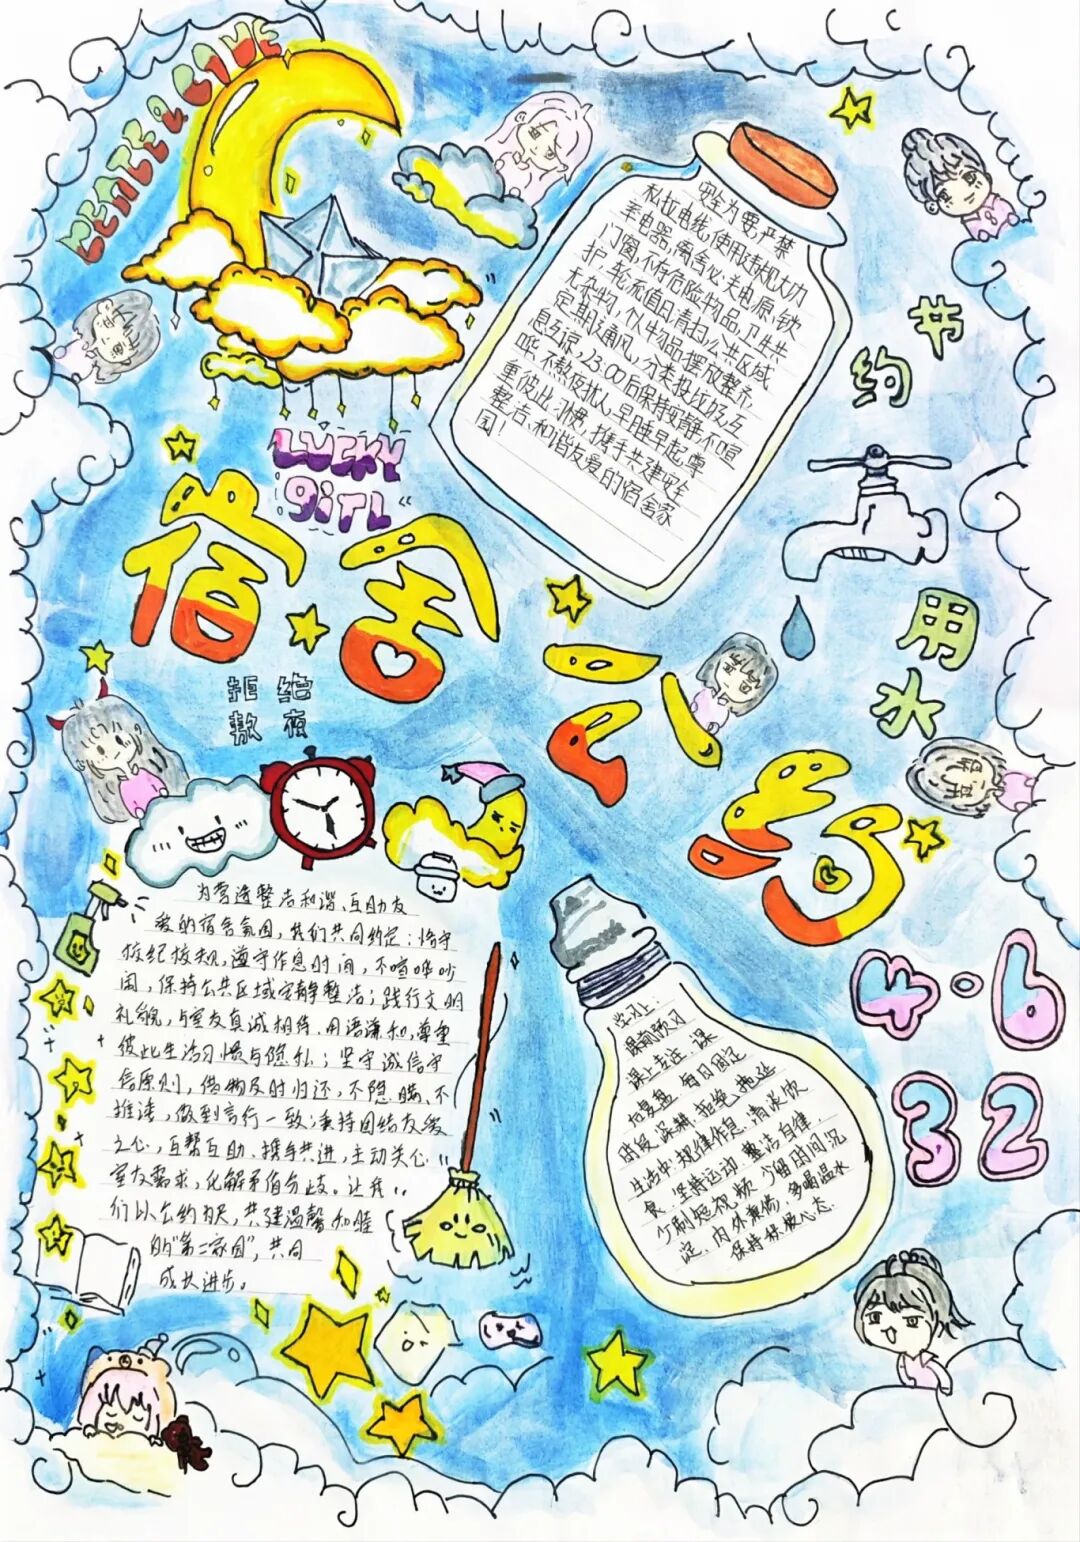 LUCKY
giTL
宿舍公约
节约用水
拒绝
熬夜
4·6
32
安全为要,严禁
私拉电线,使用违规大功
率电器,离舍必关电源,锁
门窗,不存危险物品,卫生共
护,轮充值日,清扫,公共区域
无杂物,个人物品摆放整齐,
定期通风,分类投垃圾,互
息互谅,23:00后保持安静,不喧
哗,不熬夜扰人,早睡早起,尊
重彼此习惯,携手共建安全
整洁、和谐友爱的宿舍家
园!
为营造整洁和谐、互助友
爱的宿舍氛围,我们共同约定:恪守
校纪校规,遵守作息时间,不喧哗吵
闹,保持公共区域安静整洁;践行文明
礼貌,与室友真诚相待、用语谦和,尊重
彼此生活习惯与隐私;坚守诚信守
信原则,借物及时归还,不隐瞒、不
推诿,做到言行一致;秉持团结友爱
之心,互帮互助、携手共进,主动关心
室友需求,化解矛盾分歧。让我
们以公约为尺,共建温馨和睦
的“第二家园”,共同
成长进步。
学习上:
课前预习
课上专注,课
后复盘,每日固定
时段,深耕,拒绝拖延
生活中:规律作息,清淡饮
食,坚持运动,整洁自律
少刷短视频,少留时间沉
淀,内外兼修,多喝温水
保持积极心态.